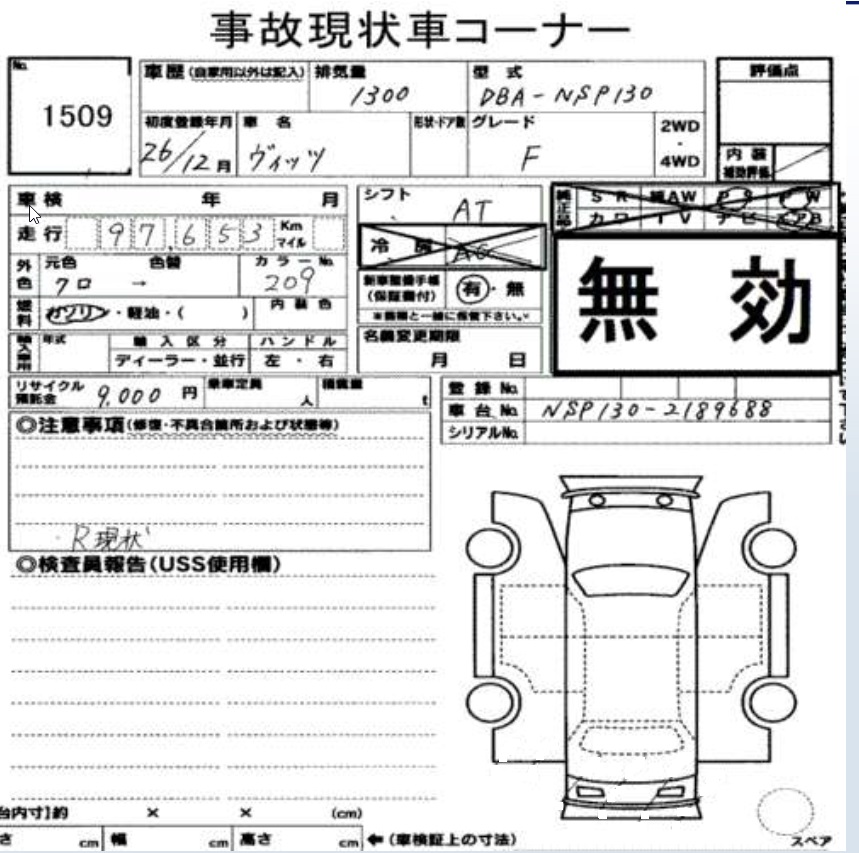 事故現状車コーナー
No. 1509
車歴(自家用以外は記入) 排気量 1300 型式 DBA-NSP130 評価点
初度登録年月 26/12月 車名 ヴィッツ 形状・ドア数 グレード F 2WD・4WD
内装補助評価
車検 年 月 シフト AT
純正品 SR AW PS PW
カワ TV ナビ エアB
走行 97,653 Km マイル
冷房 AC
無効
外色 元色 クロ → 色替 カラーNo. 209
新車整備手帳(保証書付) 有・無
※書類と一緒に保管下さい。
燃料 ガソリン・軽油・( ) 内装色
輸入車用 年式 輸入区分 ディーラー・並行 ハンドル 左・右
名義変更期限 月 日
リサイクル預託金 9,000円 乗車定員 人 積載量 t
登録No.
車台No. NSP130-2189688
シリアルNo.
◎注意事項(修復・不具合箇所および状態等)
R現状
◎検査員報告(USS使用欄)
台内寸]約 × × (cm)
さ cm 幅 cm 高さ cm ←(車検証上の寸法)
スペア